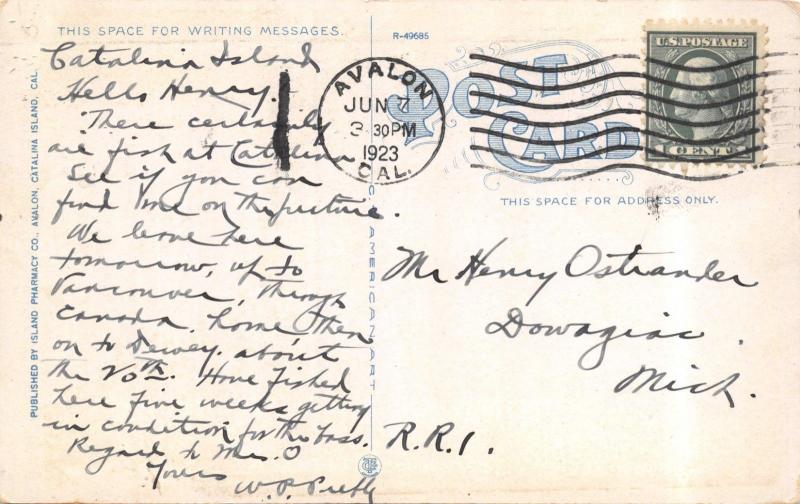 THIS SPACE FOR WRITING MESSAGES.
Catalina Island
Hello Henry.
There certainly
are fish at Catalina
See if you can
find one on the picture.
We leave here
tomorrow, up to
Vancouver, through
Canada, home then
on to Dewey. about
the 20th. Have fished
here five weeks getting
in condition for the bass.
Regard to Mrs. O
Yours
W.P.
PUBLISHED BY ISLAND PHARMACY CO., AVALON, CATALINA ISLAND, CAL.
C AMERICAN ART
R-49685
POST
CARD
AVALON
JUN 7
3 30PM
1923
CAL.
U.S. POSTAGE
1 CENT
THIS SPACE FOR ADDRESS ONLY.
Mr Henry Ostrander
Dowagiac
Mich.
R.R.1.